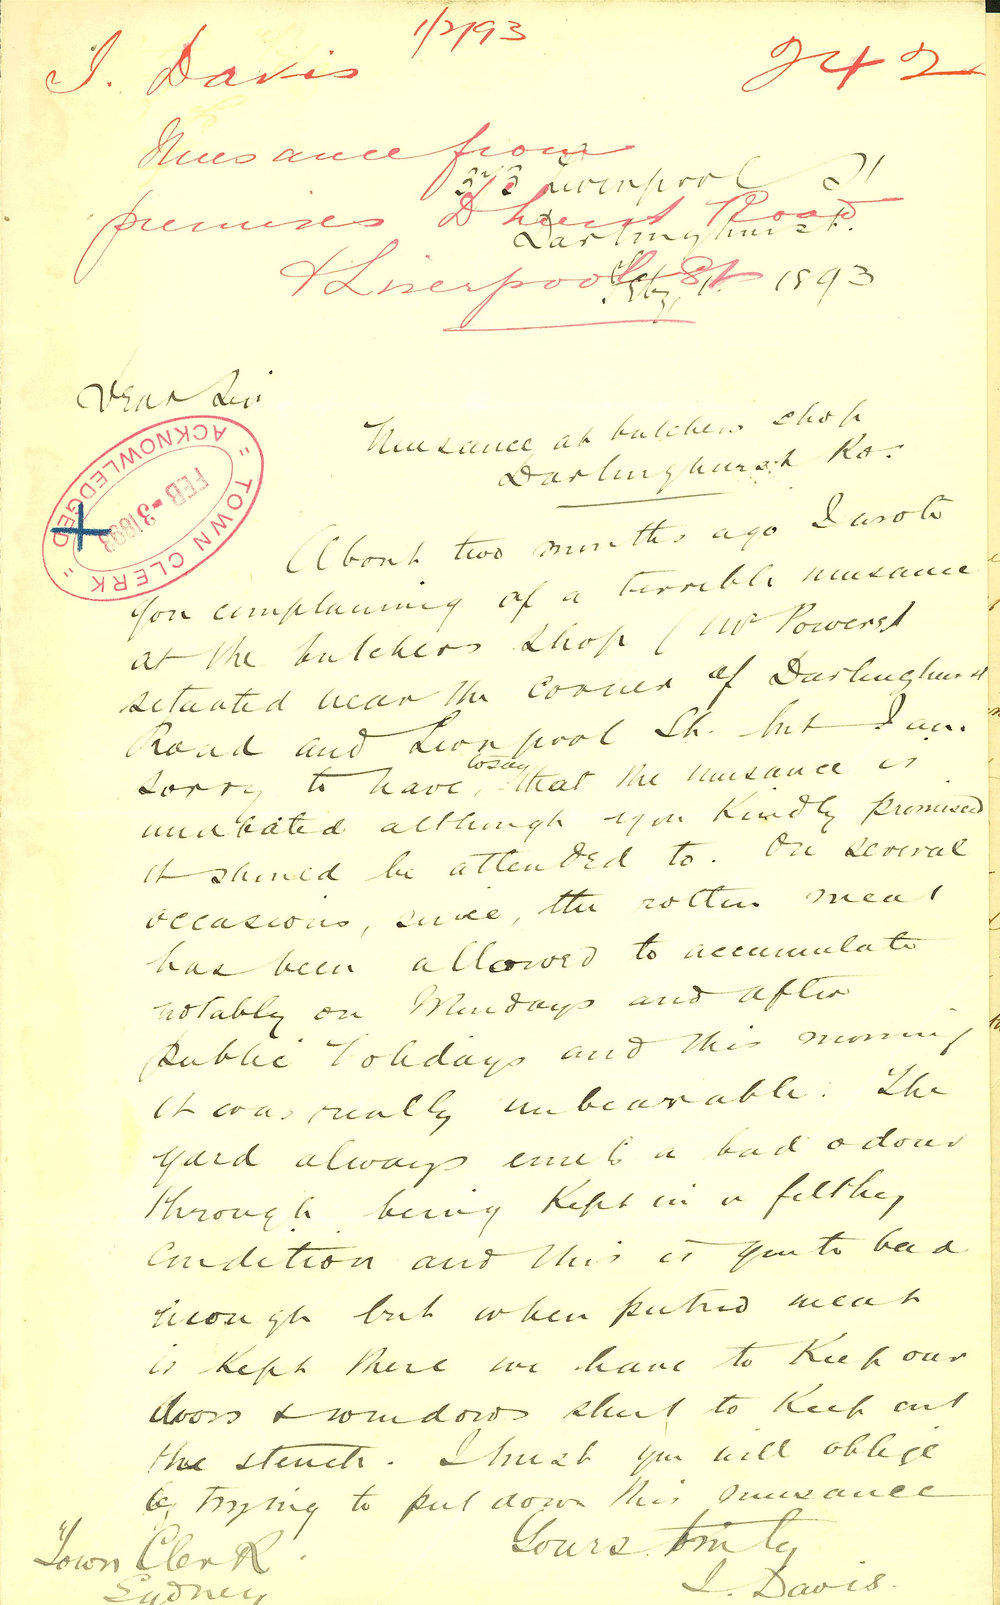 1/2/93
I. Davis
242
Nuisance from
premises D'hurst Road
& Liverpool St
373 Liverpool St
Darlinghurst.
Feby 1. 1893
Dear Sir
Nuisance at butchers shop
Darlinghurst Rd.
TOWN CLERK
ACKNOWLEDGED
FEB -3 1893
About two months ago I wrote
you complaining of a terrible nuisance
at the butchers shop (Mr Powers)
situated near the corner of Darlinghurst
Road and Liverpool St. but I am
sorry to have to say that the nuisance is
unabated although you kindly promised
it should be attended to. On several
occasions, since, the rotten meat
has been allowed to accumulate
notably on Mondays and after
Public Holidays and this morning
it was really unbearable. The
yard always emits a bad odour
through being kept in a filthy
condition and this is quite bad
enough but when putrid meat
is kept there we have to keep our
doors & windows shut to keep out
the stench. I trust you will oblige
by trying to put down this nuisance
Yours truly
I. Davis.
Town Clerk.
Sydney